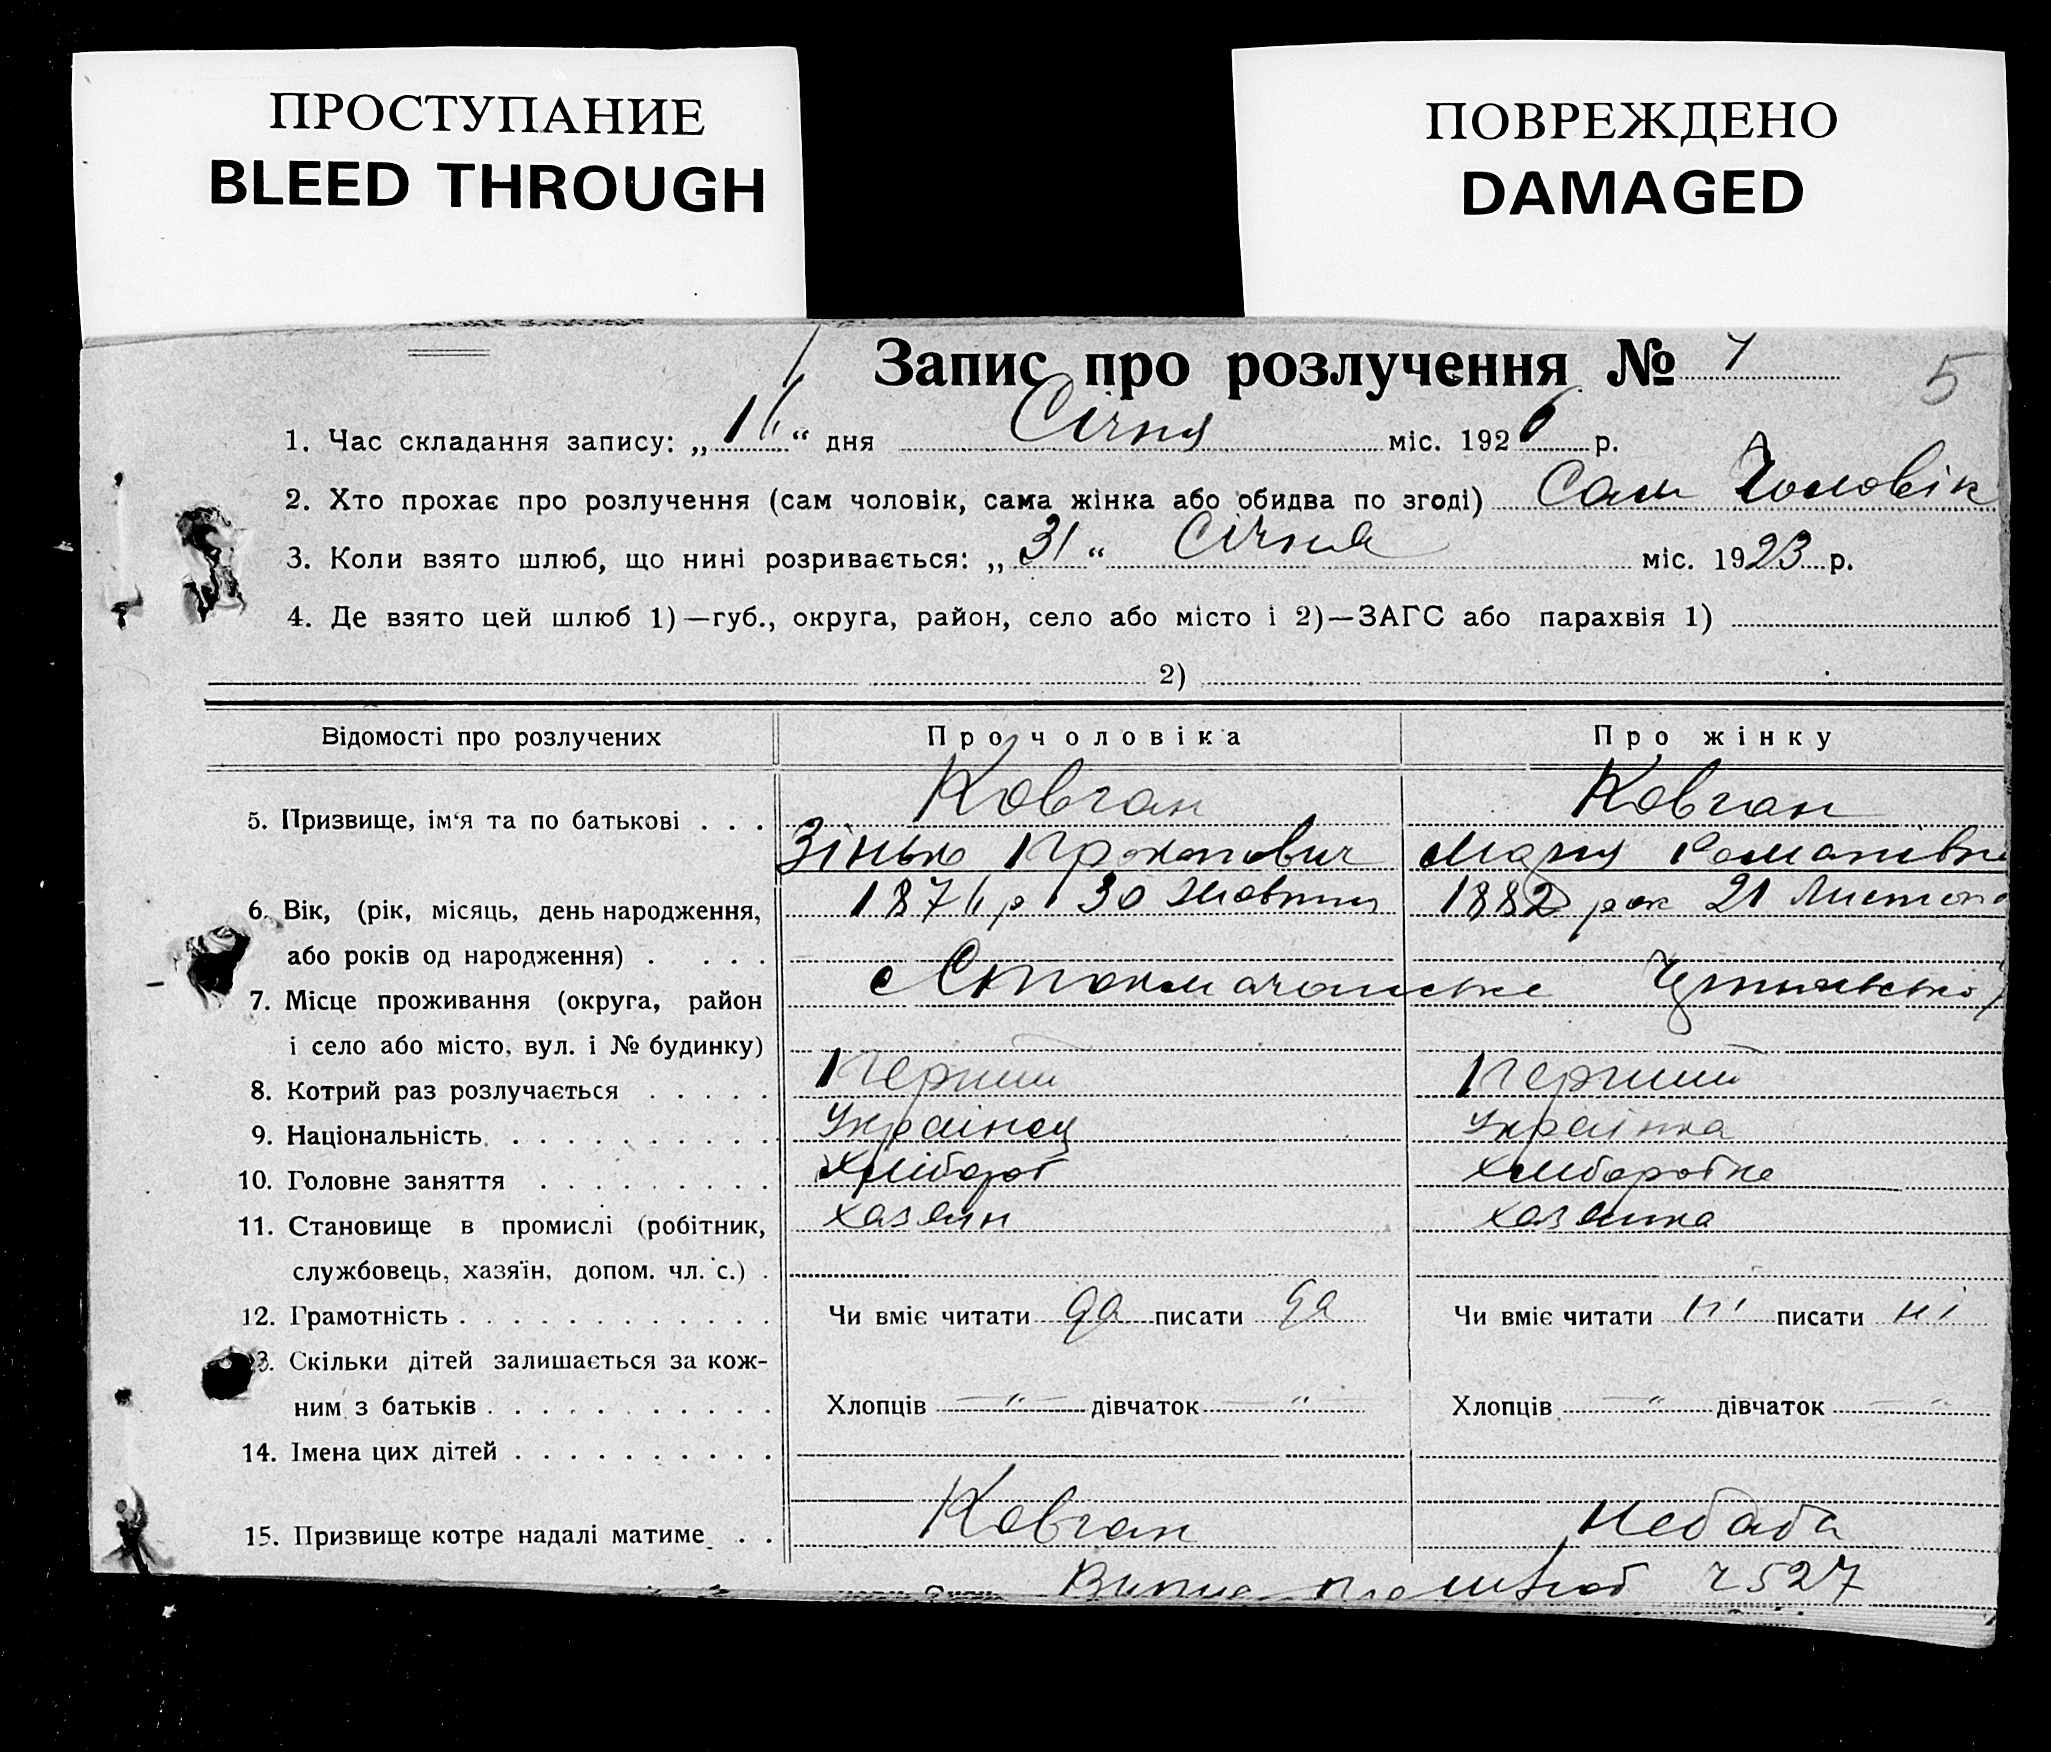 ПРОСТУПАНИЕ
BLEED THROUGH
ПОВРЕЖДЕНО
DAMAGED
Запис про розлучення №
5
1. Час складання запису: „ “ дня Січня міс. 1926 р.
2. Хто прохає про розлучення (сам чоловік, сама жінка або обидва по згоді) Сам Чоловік
3. Коли взято шлюб, що нині розривається: „31“ Січня міс. 1923 р.
4. Де взято цей шлюб 1)—губ., округа, район, село або місто і 2)—ЗАГС або парахвія 1)
2)
Відомості про розлучених Про чоловіка Про жінку
Ковган Ковган
5. Призвище, ім‘я та по батькові . . .
Зінько Прокопович Марія Романівна
6. Вік, (рік, місяць, день народження, р 30 Жовтня 1882 рок 21 Листопа
або років од народження) . . . .
7. Місце проживання (округа, район
і село або місто, вул. і № будинку)
8. Котрий раз розлучається . . . . . Перший Перший
9. Національність . . . . . . . . . . Українец Українка
10. Головне заняття . . . . . . . . . Хлібороб Хліборобка
11. Становище в промислі (робітник, хазяин хазяйка
службовець, хазяїн, допом. чл. с.) .
12. Грамотність . . . . . . . . . . . . Чи вміє читати да писати да Чи вміє читати ні писати ні
13. Скільки дітей залишається за кож-
ним з батьків . . . . . . . . . . . Хлопців —"— дівчаток —"— Хлопців —"— дівчаток —"—
14. Імена цих дітей . . . . . . . . . .
15. Призвище котре надалі матиме . . Ковган Небаба
527